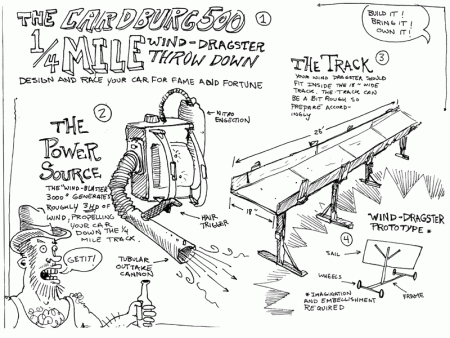 THE CARDBURG 500
1
1/4 MILE WIND-DRAGSTER
THROW DOWN
DESIGN AND RACE YOUR CAR FOR FAME AND FORTUNE
BUILD IT!
BRING IT!
OWN IT!
2
THE
POWER
SOURCE
THE "WIND-BLASTER
3000" GENERATES
ROUGHLY
OF
WIND, PROPELLING
YOUR CAR
DOWN THE 1/4
MILE TRACK.
NITRO
ENGECTION
HAIR
TRIGGER
TUBULAR
OUTTAKE
CANNON
GETIT!
THE TRACK
3
YOUR WIND DRAGSTER SHOULD
FIT INSIDE THE 18" WIDE
TRACK. THE TRACK CAN
BE A BIT ROUGH SO
PREPARE ACCORD-
INGLY
25'
18"
"WIND-DRAGSTER
PROTOTYPE"
4
SAIL
WHEELS
FRAME
* IMAGINATION
AND EMBELLISHMENT
REQUIRED